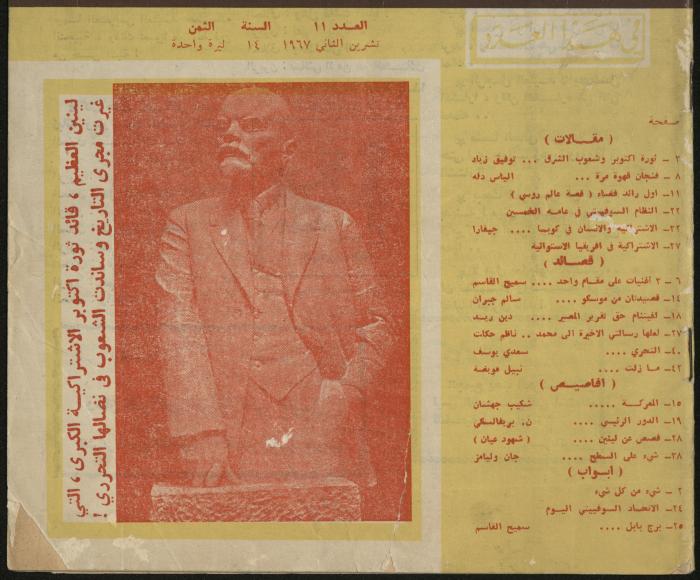 العدد ١١ السنة الثمن
تشرين الثاني ١٩٦٧ ١٤ ليرة واحدة
لينين العظيم ، قائد ثورة اكتوبر الاشتراكية الكبرى ، التي
غيرت مجرى التاريخ وساندت الشعوب في نضالها التحرري !
في هذا العدد
صفحة
( مقالات )
٢ ـ ثورة اكتوبر وشعوب الشرق ... توفيق زياد
٨ ـ فنجان قهوة مرة ... الياس دله
١١ ـ اول رائد فضاء ( قصة عالم روسي )
٢٢ ـ النظام السوفييتي في عامه الخمسين
٢٢ ـ الاشتراكية والانسان في كوبا .... جيفارا
٢٧ ـ الاشتراكية في افريقيا الاستوائية
( قصائد )
٦ ـ ٣ أغنيات على مقام واحد .... سميح القاسم
١٤ ـ قصيدتان من موسكو .... سالم جبران
١٨ ـ لفيتنام حق تقرير المصير .... دين ريد
٢٧ ـ لعلها رسالتي الاخيرة الى محمد .. ناظم حكمت
٤٠ ـ التحري .... سعدي يوسف
٤٢ ـ ما زلت .... نبيل عويضة
( أقاصيص )
١٥ ـ المعركة ..... شكيب جهشان
١٩ ـ الدور الرئيسي .... ن. بريفالسكي
٢٨ ـ قصص عن لينين .... ( شهود عيان )
٣٨ ـ شيء على السطح .... جان وليامز
( أبواب )
٢ ـ شيء من كل شيء
٢٤ ـ الاتحاد السوفييتي اليوم
٢٥ ـ برج بابل .... سميح القاسم